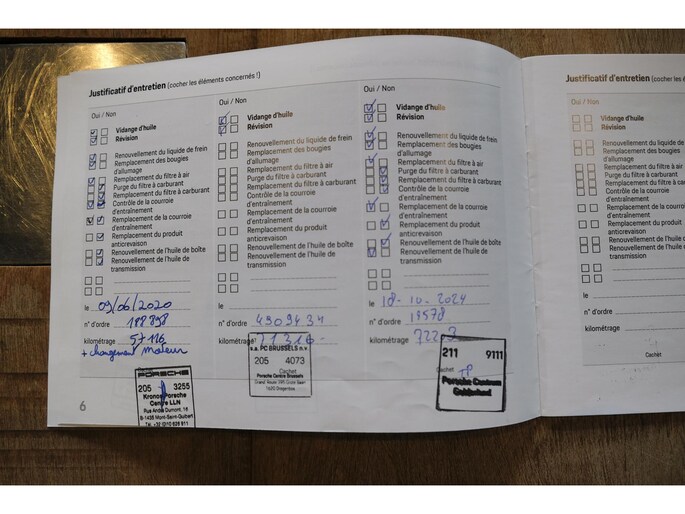 Justificatif d'entretien (cocher les éléments concernés !)
Oui / Non
Vidange d'huile
Révision
Renouvellement du liquide de frein
Remplacement des bougies
d'allumage
Remplacement du filtre à air
Purge du filtre à carburant
Remplacement du filtre à carburant
Contrôle de la courroie
d'entraînement
Remplacement de la courroie
d'entraînement
Remplacement du produit
anticrevaison
Renouvellement de l'huile de boîte
Renouvellement de l'huile de
transmission
le 09/06/2020
n° d'ordre 188898
kilométrage 57116
+ changement moteur
PORSCHE
205 3255
Kronos Porsche
Centre LLN
Rue André Dumont, 16
B-1435 Mont-Saint-Guibert
6
Oui / Non
Vidange d'huile
Révision
Renouvellement du liquide de frein
Remplacement des bougies
d'allumage
Remplacement du filtre à air
Purge du filtre à carburant
Remplacement du filtre à carburant
Contrôle de la courroie
d'entraînement
Remplacement de la courroie
d'entraînement
Remplacement du produit
anticrevaison
Renouvellement de l'huile de boîte
Renouvellement de l'huile de
transmission
le
n° d'ordre 4909434
kilométrage
s.a. PC BRUSSELS n.v.
205 4073
Cachet
Porsche Centre Brussels
Oui / Non
Vidange d'huile
Révision
Renouvellement du liquide de frein
Remplacement des bougies
d'allumage
Remplacement du filtre à air
Purge du filtre à carburant
Remplacement du filtre à carburant
Contrôle de la courroie
d'entraînement
Remplacement de la courroie
d'entraînement
Remplacement du produit
anticrevaison
Renouvellement de l'huile de boîte
Renouvellement de l'huile de
transmission
le 18-10-2024
n° d'ordre 19578
kilométrage
211 9111
Cachet
Porsche Centrum
Gelderland
Justificatif d'entretien (cocher les
Oui / Non
Vidange d'huile
Révision
Renouvellement du liquide
Remplacement des bougies
d'allumage
Remplacement du filtre à air
Purge du filtre à carburant
Remplacement du filtre à
Contrôle de la courroie
d'entraînement
Remplacement de la cour
d'entraînement
Remplacement du produit
anticrevaison
Renouvellement de l'huile
Renouvellement de l'huile
transmission
le
n° d'ordre
kilométrage
Cachet